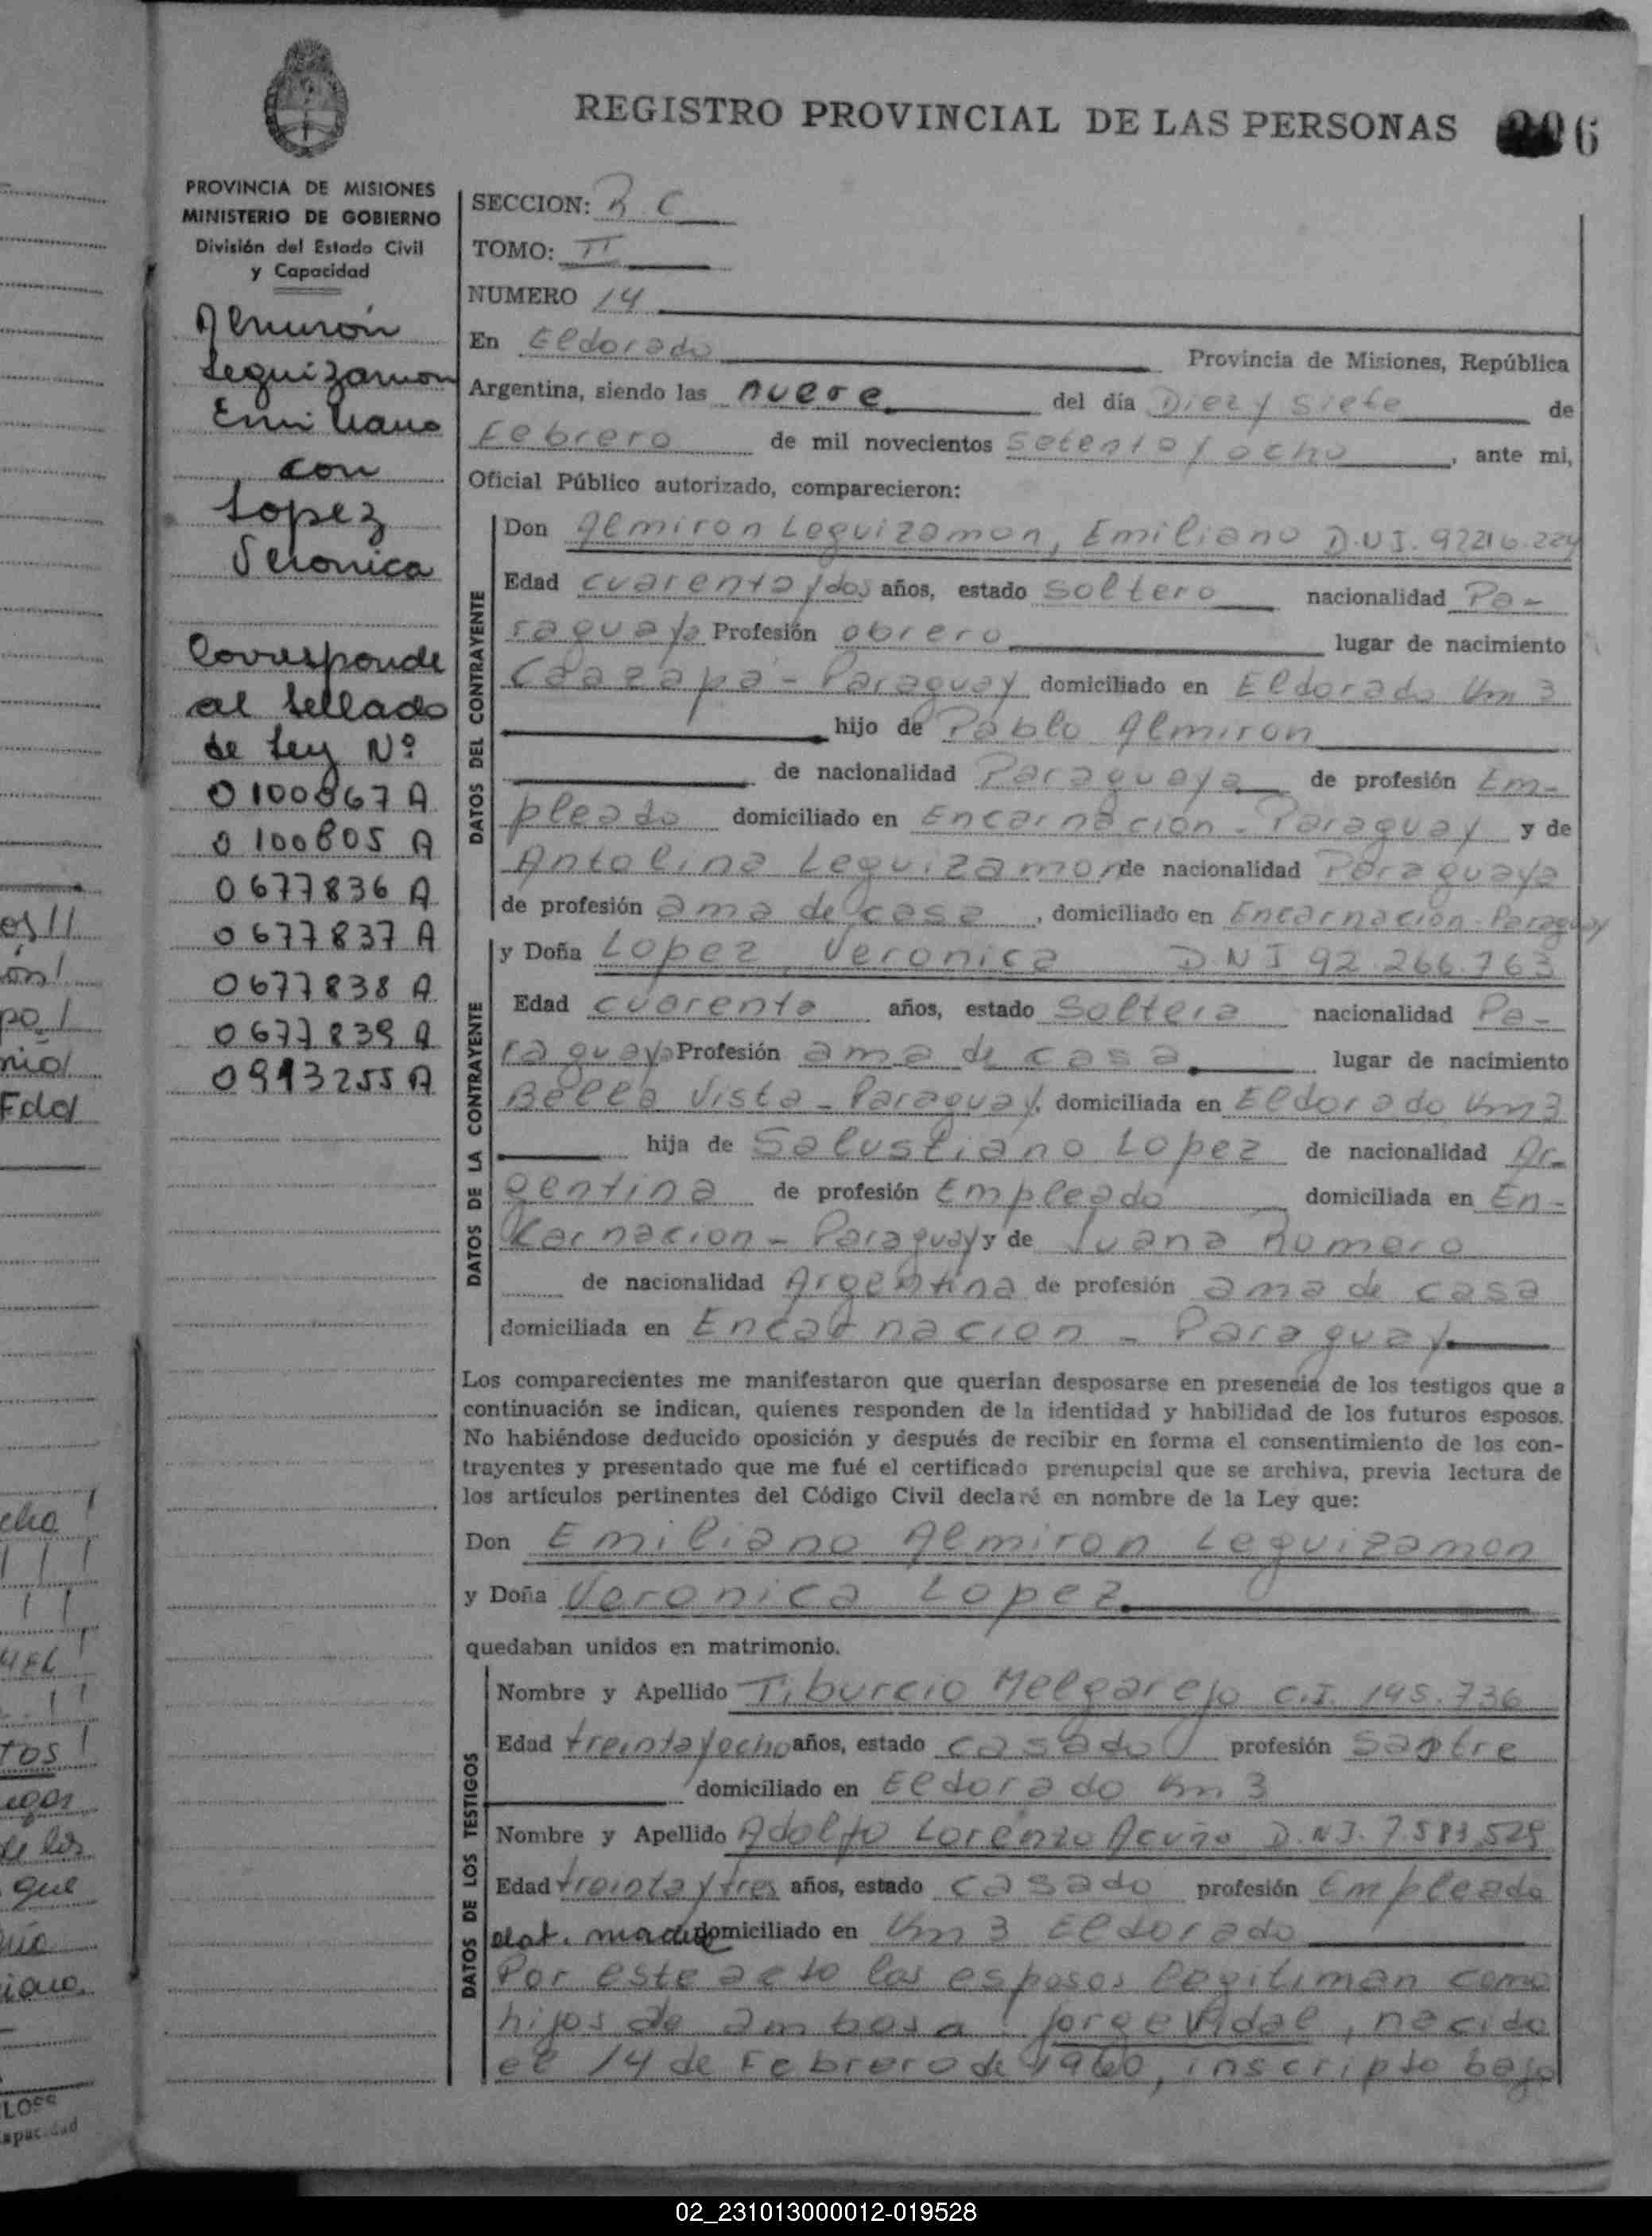 REGISTRO PROVINCIAL DE LAS PERSONAS
6
PROVINCIA DE MISIONES
MINISTERIO DE GOBIERNO
División del Estado Civil
y Capacidad
Almirón
Leguizamon
Emiliano
con
Lopez
Veronica
Corresponde
al sellado
de Ley Nº
0100867 A
0100805 A
0677836 A
0677837 A
0677838 A
0677839 A
0993255 A
SECCION: R C
TOMO: II
NUMERO 14
En Eldorado Provincia de Misiones, República
Argentina, siendo las nueve del día Diez y siete de
Febrero de mil novecientos setenta y ocho, ante mi,
Oficial Público autorizado, comparecieron:
DATOS DEL CONTRAYENTE
Don Almiron Leguizamon, Emiliano D.N.I. 92216.224
Edad cuarenta y dos años, estado soltero nacionalidad Pa-
raguaya Profesión obrero lugar de nacimiento
Caazapá - Paraguay domiciliado en Eldorado Km 3
hijo de Pablo Almiron
de nacionalidad Paraguaya de profesión Em-
pleado domiciliado en Encarnacion - Paraguay y de
Antolina Leguizamon de nacionalidad Paraguaya
de profesión ama de casa, domiciliado en Encarnacion - Paraguay
DATOS DE LA CONTRAYENTE
y Doña Lopez, Veronica D N I 92.266.763
Edad cuarenta años, estado Soltera nacionalidad Pa-
raguaya Profesión ama de casa lugar de nacimiento
Bella Vista - Paraguay, domiciliada en Eldorado Km 3
hija de Salustiano Lopez de nacionalidad Ar-
gentina de profesión Empleado domiciliada en En-
carnacion - Paraguay y de Juana Romero
de nacionalidad Argentina de profesión ama de casa
domiciliada en Encarnacion - Paraguay
Los comparecientes me manifestaron que querían desposarse en presencia de los testigos que a
continuación se indican, quienes responden de la identidad y habilidad de los futuros esposos.
No habiéndose deducido oposición y después de recibir en forma el consentimiento de los con-
trayentes y presentado que me fué el certificado prenupcial que se archiva, previa lectura de
los artículos pertinentes del Código Civil declaré en nombre de la Ley que:
Don Emiliano Almiron Leguizamon
y Doña Veronica Lopez
quedaban unidos en matrimonio.
DATOS DE LOS TESTIGOS
Nombre y Apellido Tiburcio Melgarejo C.I. 195.736
Edad treinta y ocho años, estado casado profesión Sastre
domiciliado en Eldorado Km 3
Nombre y Apellido Adolfo Lorenzo Acuña D.N.I. 7.583.529
Edad treinta y tres años, estado casado profesión Empleado
domiciliado en Km 3 Eldorado
Por este acto los esposos legitiman como
hijos de ambos a: Jorge Vidal, nacido
el 14 de Febrero de 1960, inscripto bajo
02_231013000012-019528